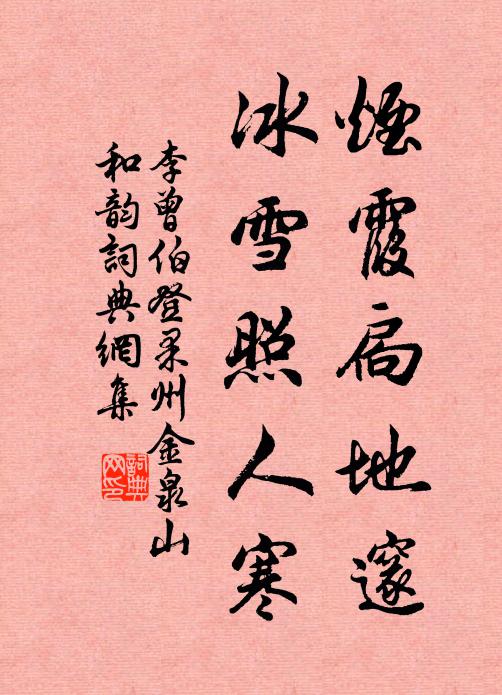 煙霞扃地邃
冰雪照人寒
李曾伯登果州金泉山
和韵詞典網集
詞典网印